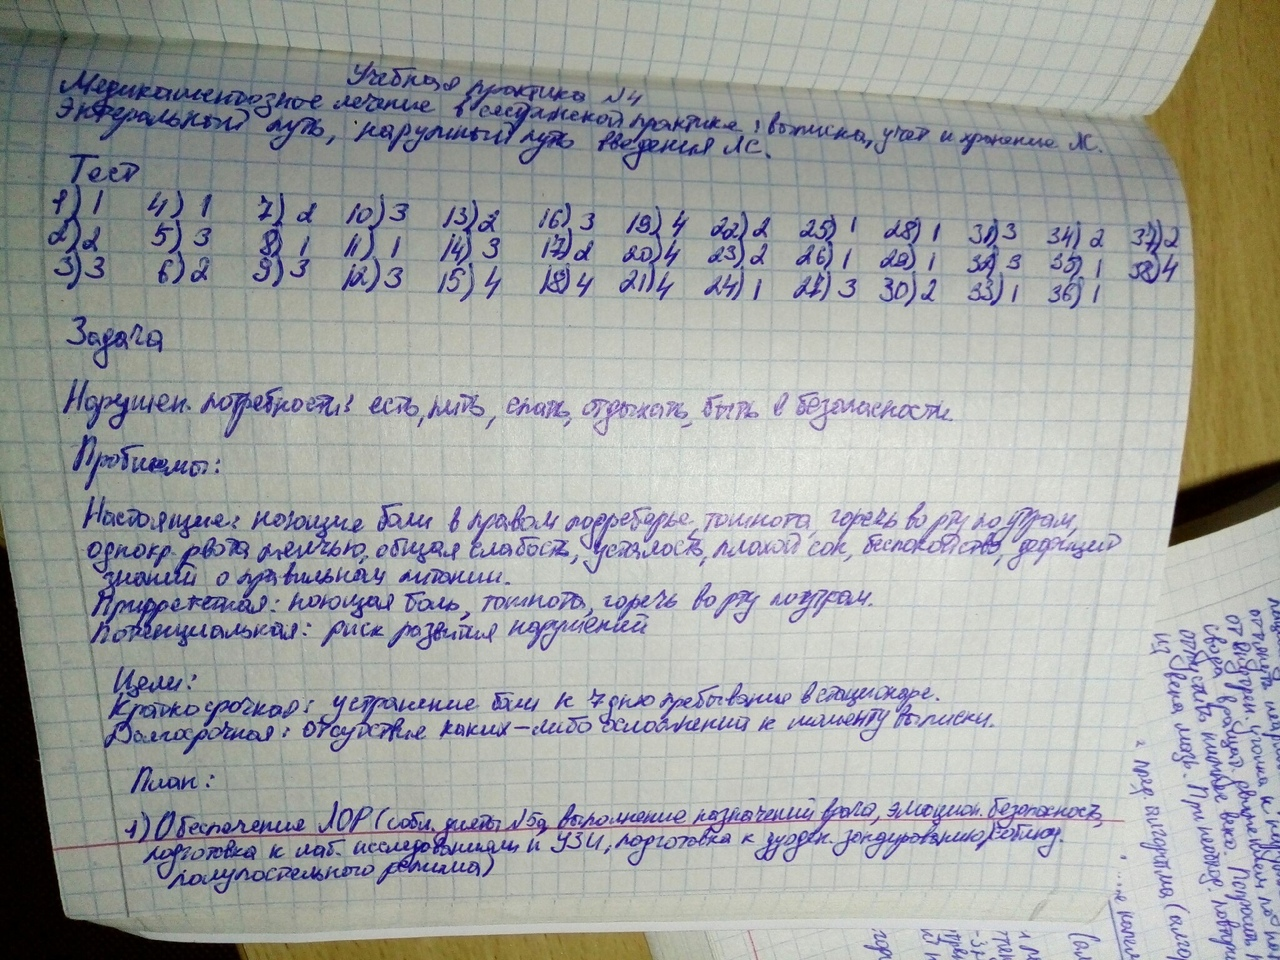 Учебная практика №4
Медикаментозное лечение в сестринской практике: выписка, учёт и хранение ЛС.
Энтеральный путь, наружный путь введения ЛС.
Тест
1) 1 4) 1 7) 2 10) 3 13) 2 16) 3 19) 4 22) 2 25) 1 28) 1 31) 3 34) 2 37) 2
2) 2 5) 3 8) 1 11) 1 14) 3 17) 2 20) 4 23) 2 26) 1 29) 1 32) 3 35) 1 38) 4
3) 3 6) 2 9) 3 12) 3 15) 4 18) 4 21) 4 24) 1 27) 3 30) 2 33) 1 36) 1
Задача
Нарушен. потребности: есть, пить, спать, отдыхать, быть в безопасности
Проблемы:
Настоящие: ноющие боли в правом подреберье, тошнота, горечь во рту по утрам,
однокр. рвота желчью, общая слабость, усталость, плохой сон, беспокойство, дефицит
знаний о правильном питании.
Приоритетная: ноющая боль, тошнота, горечь во рту по утрам.
Потенциальная: риск развития нарушений
Цели:
Краткосрочная: устранение боли к 7 дню пребывание в стационаре.
Долгосрочная: отсутствие каких-либо осложнений к моменту выписки.
План:
1) Обеспечение ЛОР (собл. диеты №5а, выполнение назначений врача, эмоцион. безопасность,
подготовка к лаб. исследованиям и УЗИ, подготовка к дуоден. зондированию, соблюд.
полупостельного режима)